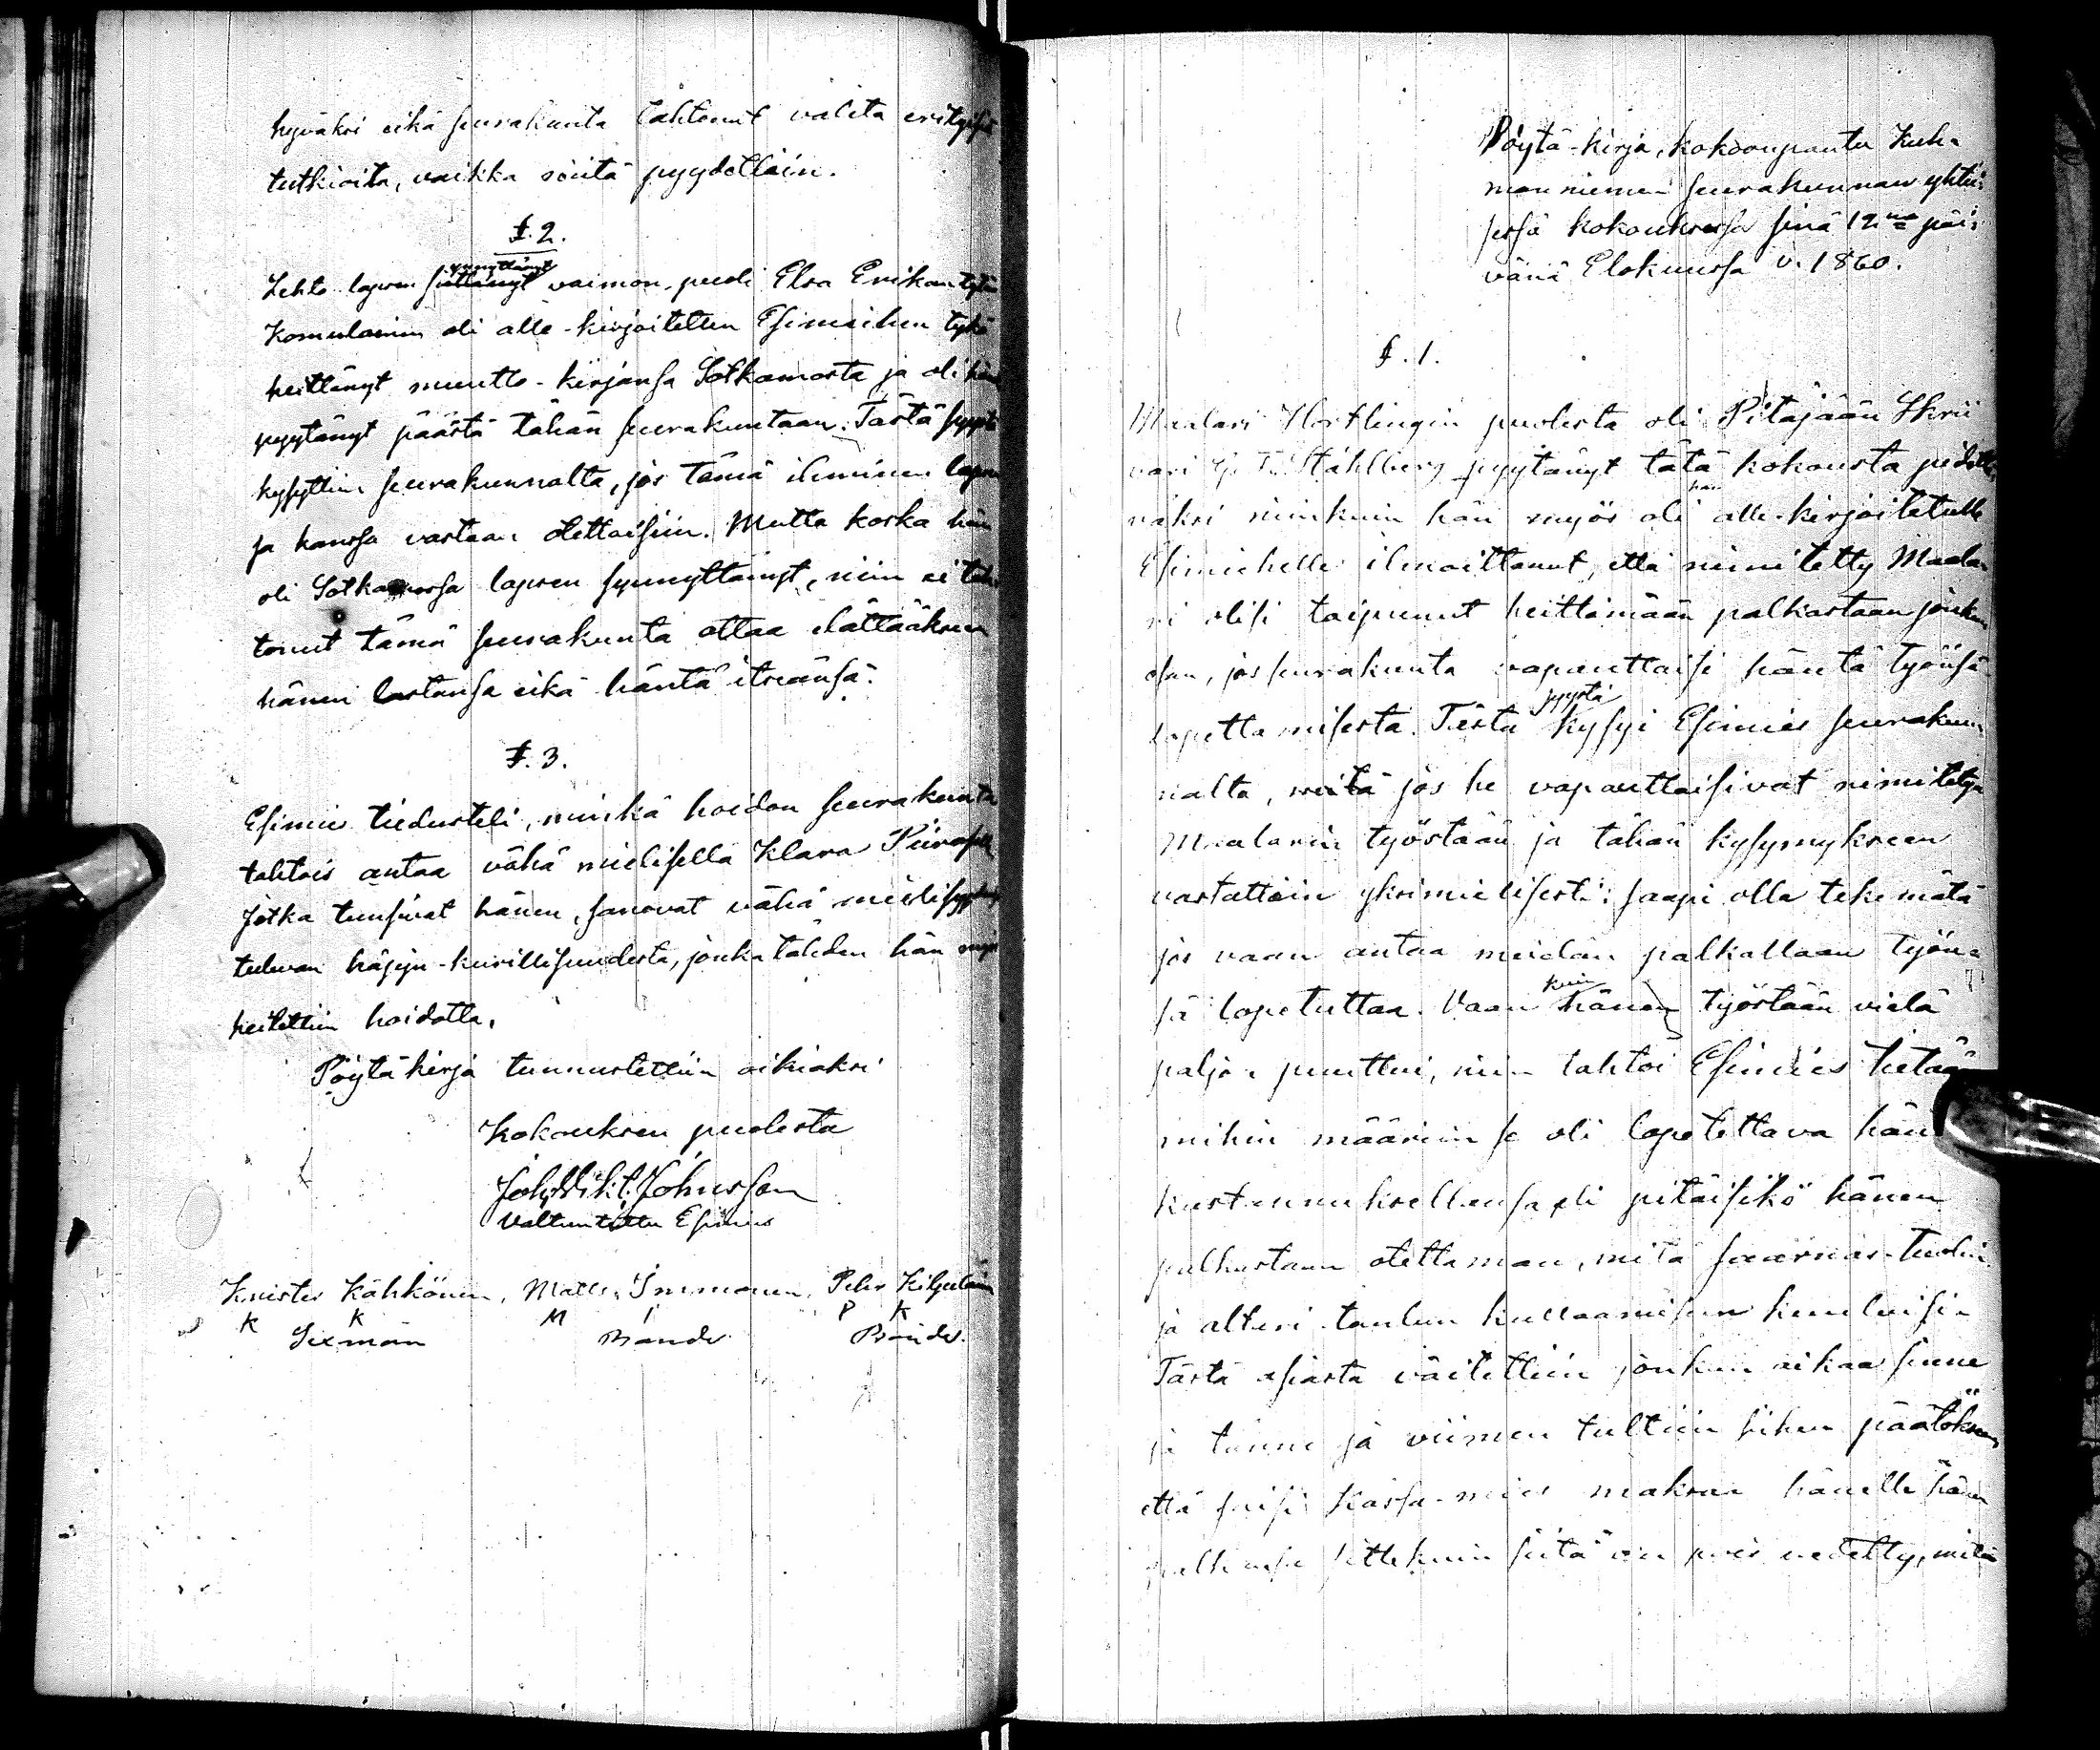 hyväksi eikä seurakunta tahtonut valita erityisiä
tutkioita, vaikka niitä pyydettiin.
§. 2.
Lehto lapsen synnyttänyt vaimon-puoli Elsa Erikan tytär
Komulainen oli alle-kirjoitetun Esimiehen tykö
heittänyt muutto-kirjansa Sotkamosta ja oli hän
pyytänyt päästä tähän seurakuntaan. Tästä syystä
kysyttiin seurakunnalta, jos tämä ihminen lapsen
sa kanssa vastaan otettaisiin. Mutta koska hän
oli Sotkamossa lapsen synnyttänyt, niin ei tah-
tonut tämä seurakunta ottaa elättääksen
hänen lastansa eikä häntä itseänsä.
§. 3.
Esimies tiedusteli, minkä hoidon seurakunta
tahtois antaa vähä mielisellä Klara
Jotka tunsivat hänen, sanovat vähä mielisyyden
tulevan häjyn-kurillisuudesta, jonka tähden hän myös
heitettiin hoidotta.
Pöytäkirja tunnustettiin oikiaksi
Kokouksen puolesta
Joh. Vikt. Johnsson
Valtuutettu Esimies
Krister Kähkönen, Matts Immonen, Petter Kilpeläinen
K K M I P K
Sexman Bonde Bonde.
Pöytä-kirja, kokoonpantu Kuh-
mon niemen seurakunnan yhtei-
sessä kokouksessa sinä 12na päi-
vänä Elokuussa v. 1860.
§. 1.
Maalari Hortlingin puolesta oli Pitäjään Skrii
vari G. F. Ståhlberg pyytänyt tätä kokousta pidettä-
väksi niinkuin hän myös oli hän alle-kirjoitetulle
Esimiehelle ilmoittanut, että nimitetty Maala-
ri olisi taipunut heittämään palkastaan jonkun
osan, jos seurakunta vapauttaisi häntä työnsä
lopettamisesta. Tästä syystä kysyi Esimies seurakun-
nalta, mitä jos he vapauttaisivat nimitetyn
Maalarin työstään ja tähän kysymykseen
vastattiin yksimielisesti: saapi olla tekemätä
jos vaan antaa meidän palkallaan työn-
sä lopetuttaa. Vaan kuin hänen työstään vielä
paljon puuttui, niin tahtoi Esimies tietää
mihin määriin se oli lopetettava hänen
kustannuksellensa eli pitäisikö hänen
palkastaan otettaman, mitä saarnas-tuolin
ja alteri-taulun kultaamiseen kuuluisi.
Tästä asiasta väitettiin jonkun aikaa sinne
ja tänne ja viimen tultiin siihen päätökseen
että saisi Kassa-mies maksaa hänelle hänen
palkansa sittekuin siitä on pois vedetty, mitä